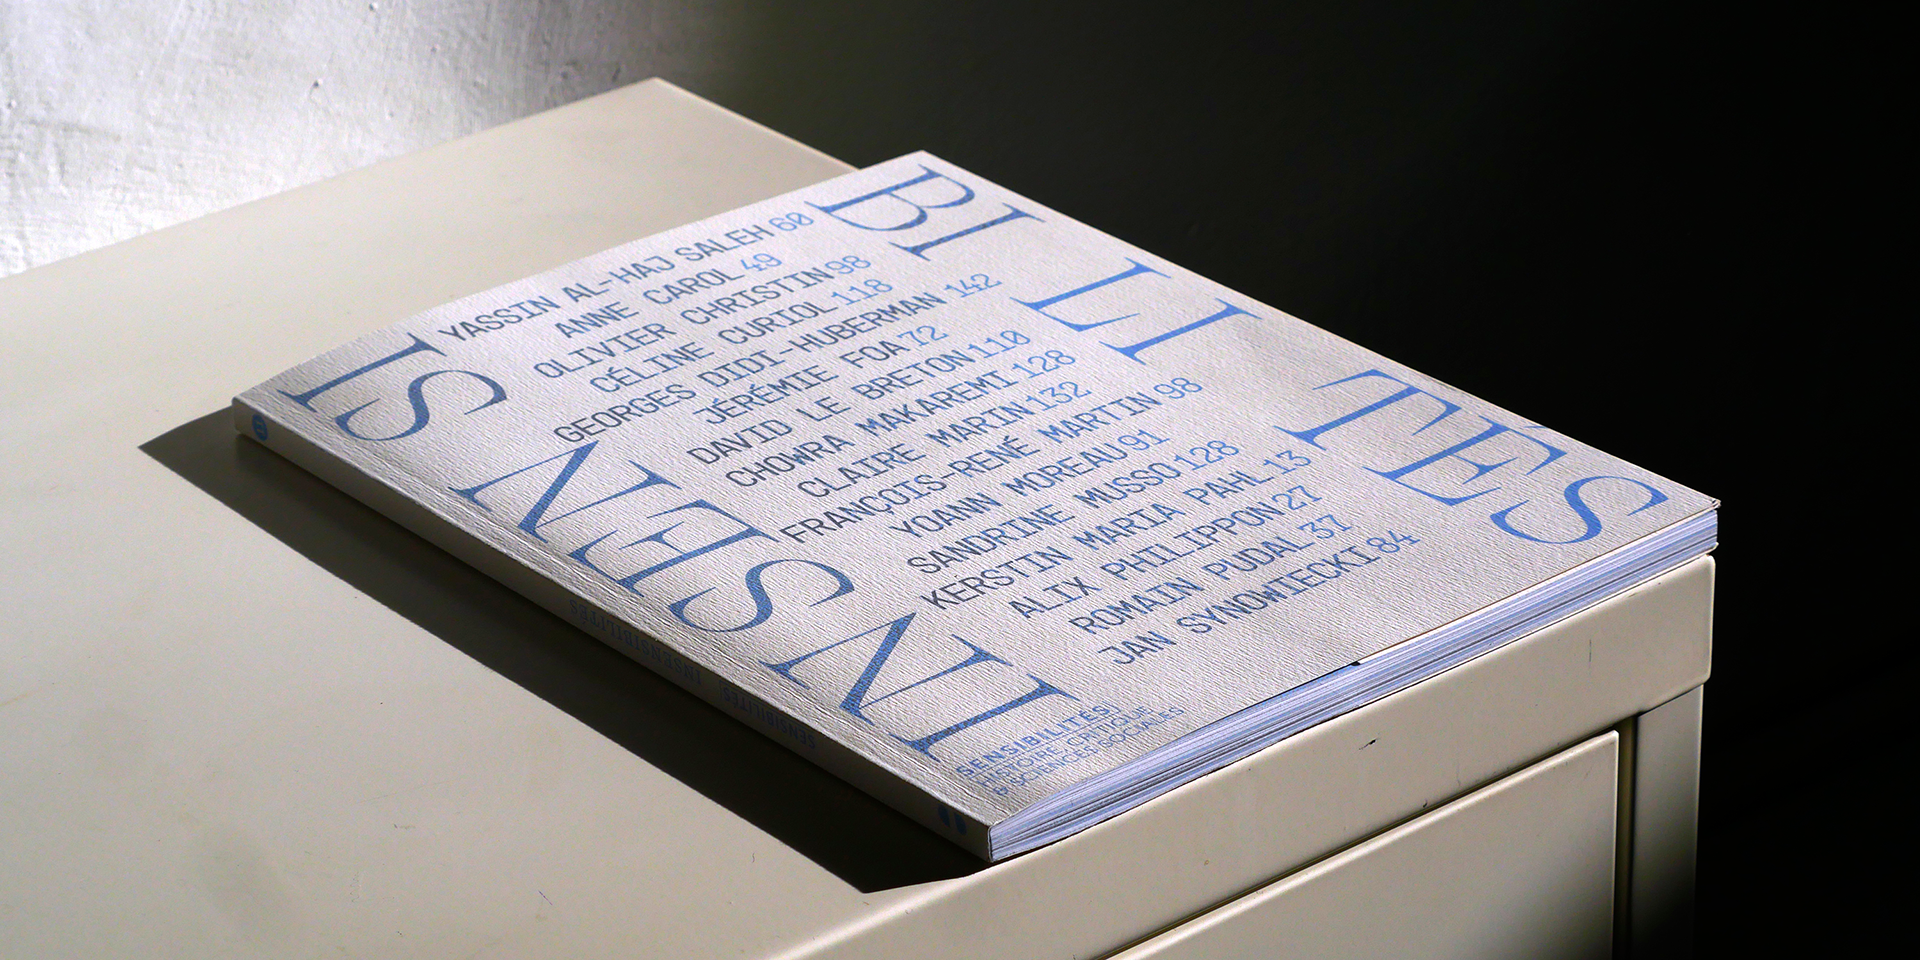 INSENSI
BILITÉS
YASSIN AL-HAJ SALEH 60
ANNE CAROL 49
OLIVIER CHRISTIN 98
CÉLINE CURIOL 118
GEORGES DIDI-HUBERMAN 142
JÉRÉMIE FOA 72
DAVID LE BRETON 110
CHOWRA MAKAREMI 128
CLAIRE MARIN 132
FRANÇOIS-RENÉ MARTIN 98
YOANN MOREAU 91
SANDRINE MUSSO 128
KERSTIN MARIA PAHL 13
ALIX PHILIPPON 27
ROMAIN PUDAL 37
JAN SYNOWIECKI 84
SENSIBILITÉS:
HISTOIRE, CRITIQUE
& SCIENCES SOCIALES
SENSIBILITÉS
INSENSIBILITÉS